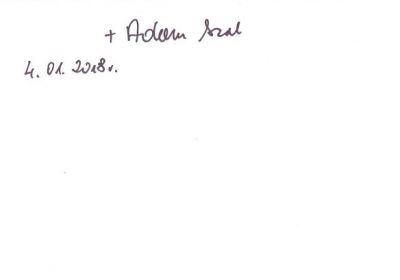 + Adam Szal
4. 01. 2018 r.